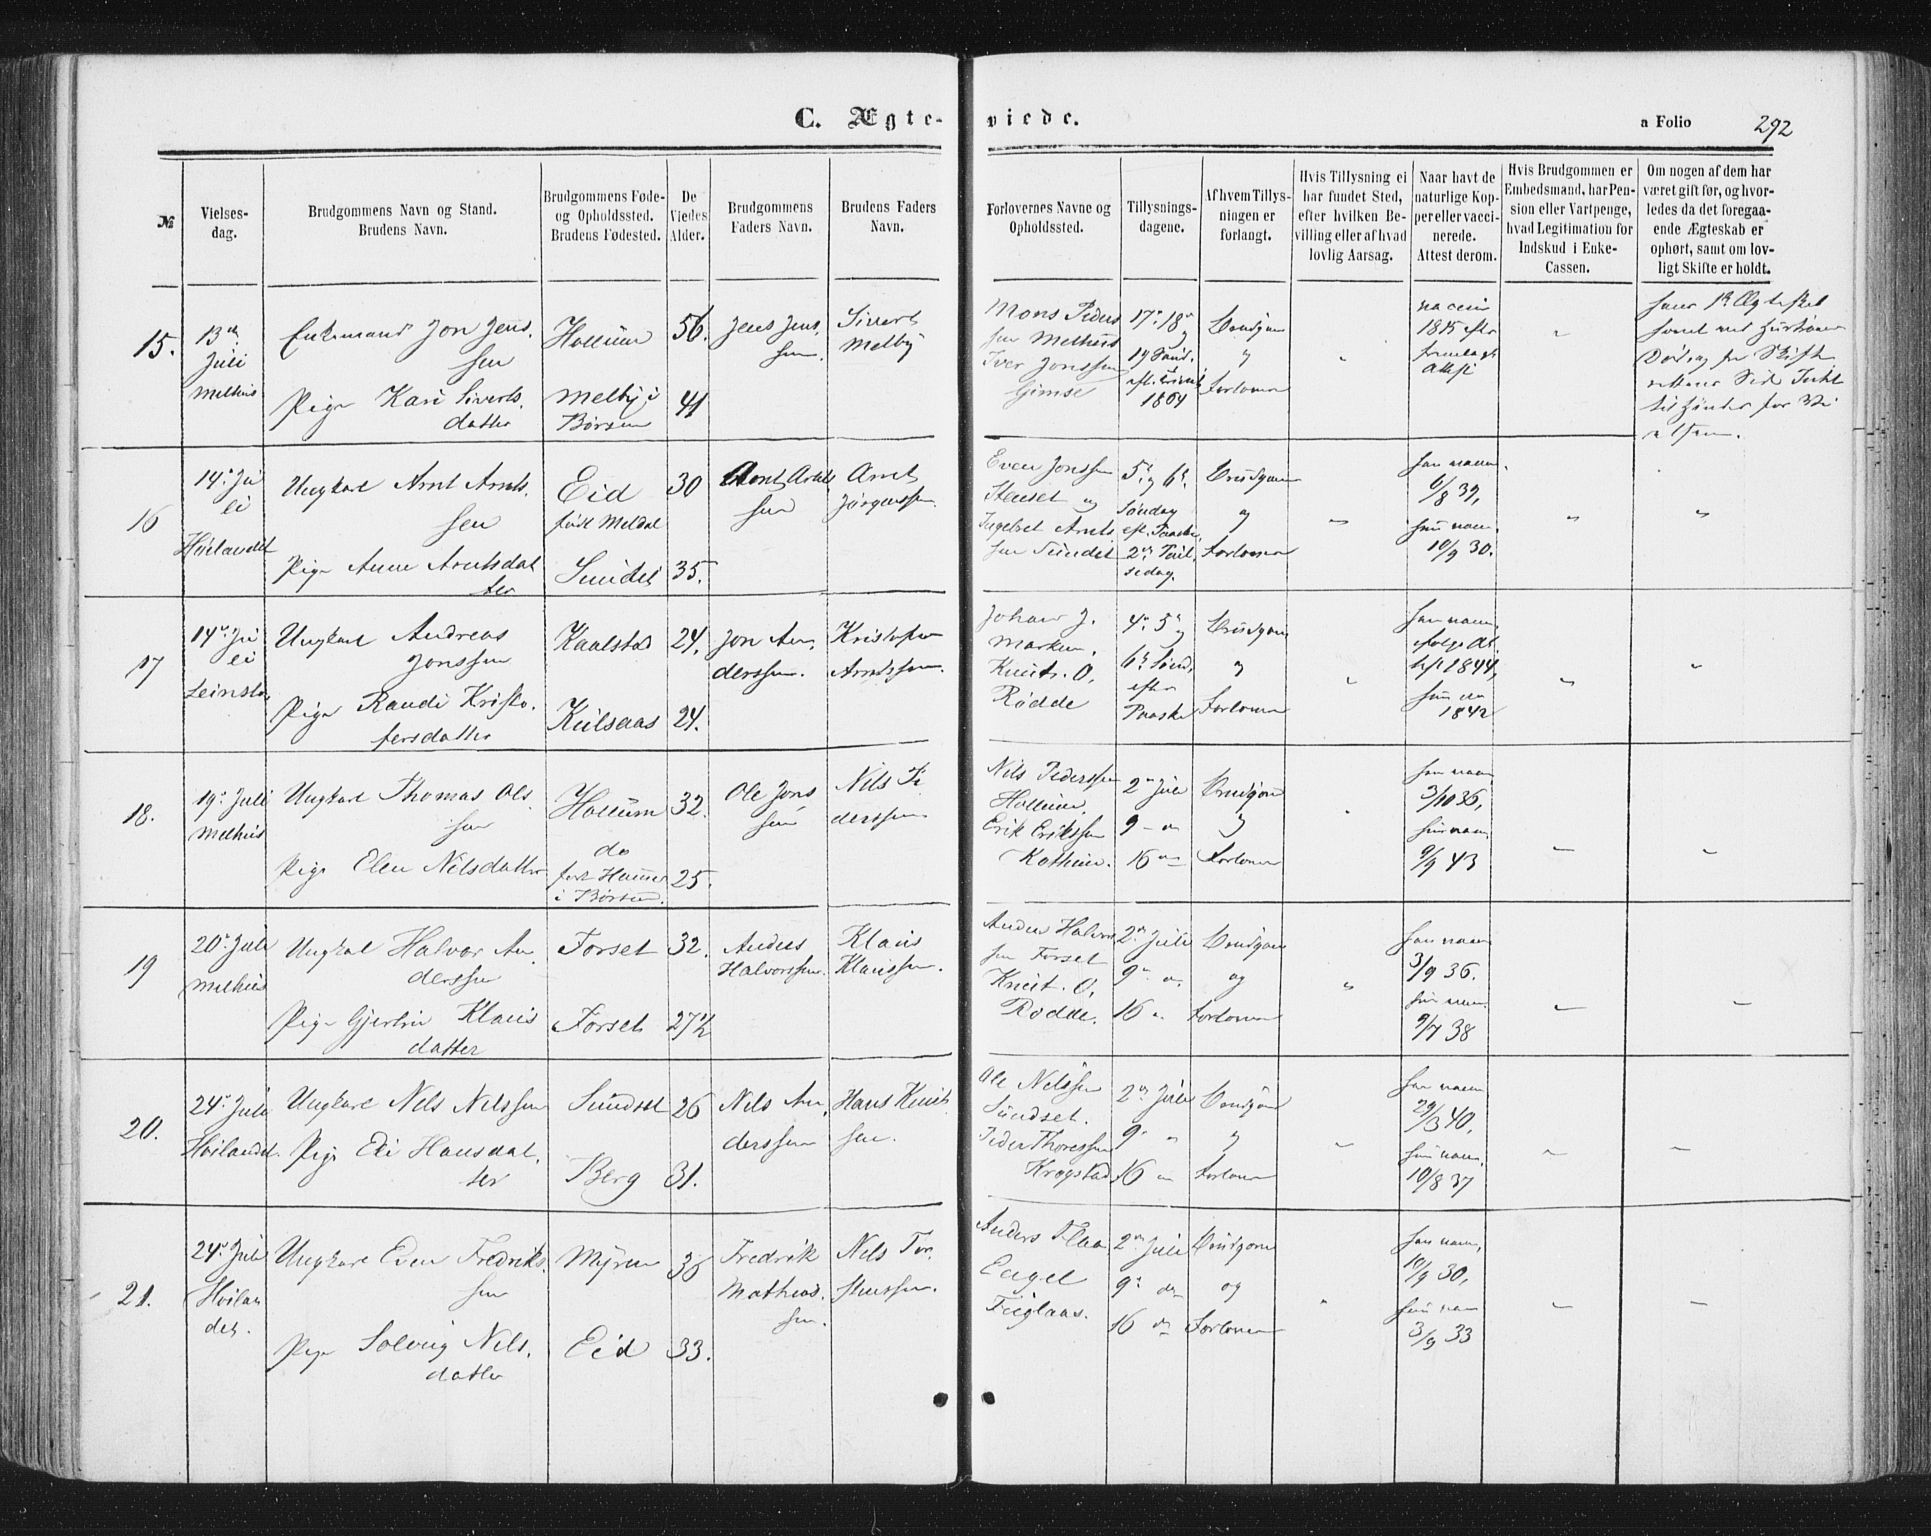 C. Ægte-
viede.
a Folio 292
№
Vielses-
dag.
Brudgommens Navn og Stand.
Brudens Navn.
Brudgommens Føde-
og Opholdssted.
Brudens Fødested.
De
Viedes
Alder.
Brudgommens
Faders Navn.
Brudens Faders
Navn.
Forlovernes Navne og
Opholdssted.
Tillysnings-
dagene.
Af hvem Tillys-
ningen er
forlangt.
Hvis Tillysning ei
har fundet Sted,
efter hvilken Be-
villing eller af hvad
lovlig Aarsag.
Naar havt de
naturlige Kop-
per eller vacci-
nerede.
Attest derom.
Hvis Brudgommen er
Embedsmand, har Pen-
sion eller Vartpenge,
hvad Legitimation for
Indskud i Enke-
Cassen.
Om nogen af dem har
været gift før, og hvor-
ledes da det foregaa-
ende Ægteskab er
ophørt, samt om lov-
ligt Skifte er holdt.
15.
13de
Juli
Melhus
Enkemand Jon Jens.
sen
Pige Kari Siverts.
datter
Hollum
Melby i
Børsen
56.
41
Jens Jens.
sen.
Sivert
Melby
Mons Peders
sen Melhus
Iver Jonssen
Gimse
17. 18
19 Sønd.
1864
Brudgom
Forlover
1815
16
14. Ju
li
Høilandet
Ungkarl Arnt Arnts.
sen
Pige Anne Arntsdat
ter
Eid
født Meldal
Sundet
30
35.
Arnt Arnts
sen
Arnt
Jørgenssen
Even Jonssen
Stenset og
Ingebret Arnts
sen Sundet
5. 6.
Søndag
eft. Paaske
Brudgom
og
Forlover
han nam.
6/8 39,
hun nam.
10/9 30.
17
14. Ju
li
Leinstr.
Ungkarl Andreas
Jonssen
Pige Randi Kristo.
fersdatter
Kaalstad
Kulsaas
24.
24.
Jon An.
derssen.
Kristofer
Arntssen.
Johan J.
Marken.
Knut. O.
Rødde
4. 5.
6. Sønd.
efter
Paaske
Brudgom
Forlover
han nam.
1844,
hun
1842
18.
19. Juli
Melhus
Ungkarl Thomas Ols.
sen
Pige Elen Nilsdatter
Hollum
do
født Hammer
i Børsen.
32.
25.
Ole Jons
sen
Nils Pe
derssen
Nils Pederssen
Hollum
Erik Erikssen
2 Juli
9
16
Brudgom
Forlover
han nam
3/10 36,
hun nam.
9/9 43
19
20. Juli
Melhus
Ungkal Halvor An.
derssen
Pige Gjertru Klaus
datter
Forset
Forset
32.
27½
Anders
Halvorssen.
Klaus
Klaussen.
Anders Halvor
sen Forset
Knut. O.
Rødde.
2. Juli
9
16
Brudgom
og
Forlover
han nam
3/9 36.
hun nam.
9/7 38
20.
24. Juli
Høilandet.
Ungkarl Nils Nilssen
Pige Eli Hansdat.
ter
Sundset
Berg
26
31.
Nils An.
derssen
Hans Knut
sen.
Ole Nilssen
Sundset.
Peder Thoressen
Krogstad
2 Juli
9
16
Brudgom
Forlover
han nam
29/3 40,
hun nam.
10/8 37
21.
24. Juli
Høilan
det.
Ungkarl Even Fredriks.
sen
Pige Solveig Nils.
datter
Myren
Eid
36
33.
Fredrik
Mathias.
sen.
Nils Tor.
stenssen.
Anders Flaa
Engel
Fuglaas.
2 Juli
9
16
Brudgom
og
Forlover
han nam.
10/9 30,
hun nam
3/9 33